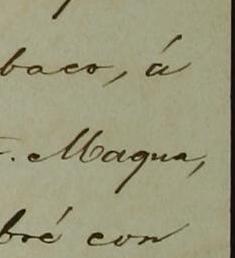 baco, á
. Magna,
bré con